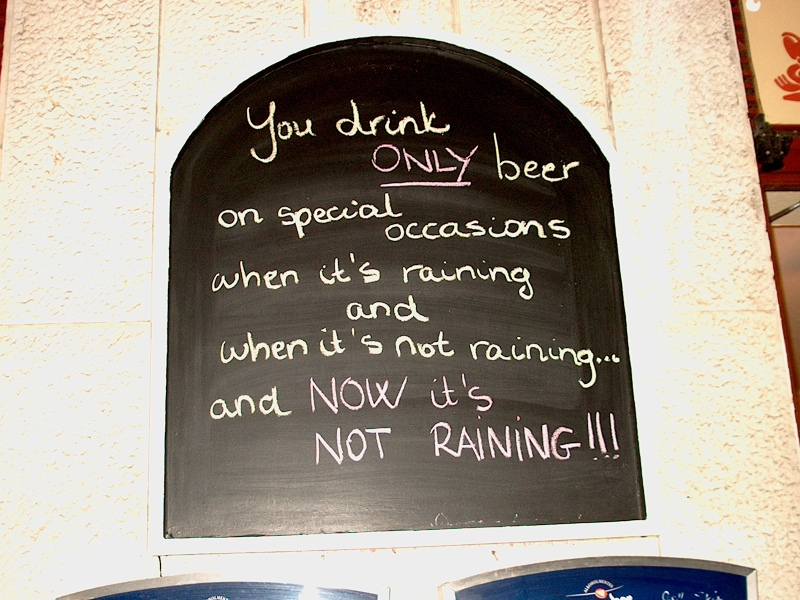 You drink
ONLY beer
on special
occasions
when it's raining
and
when it's not raining...
and NOW it's
NOT RAINING!!!